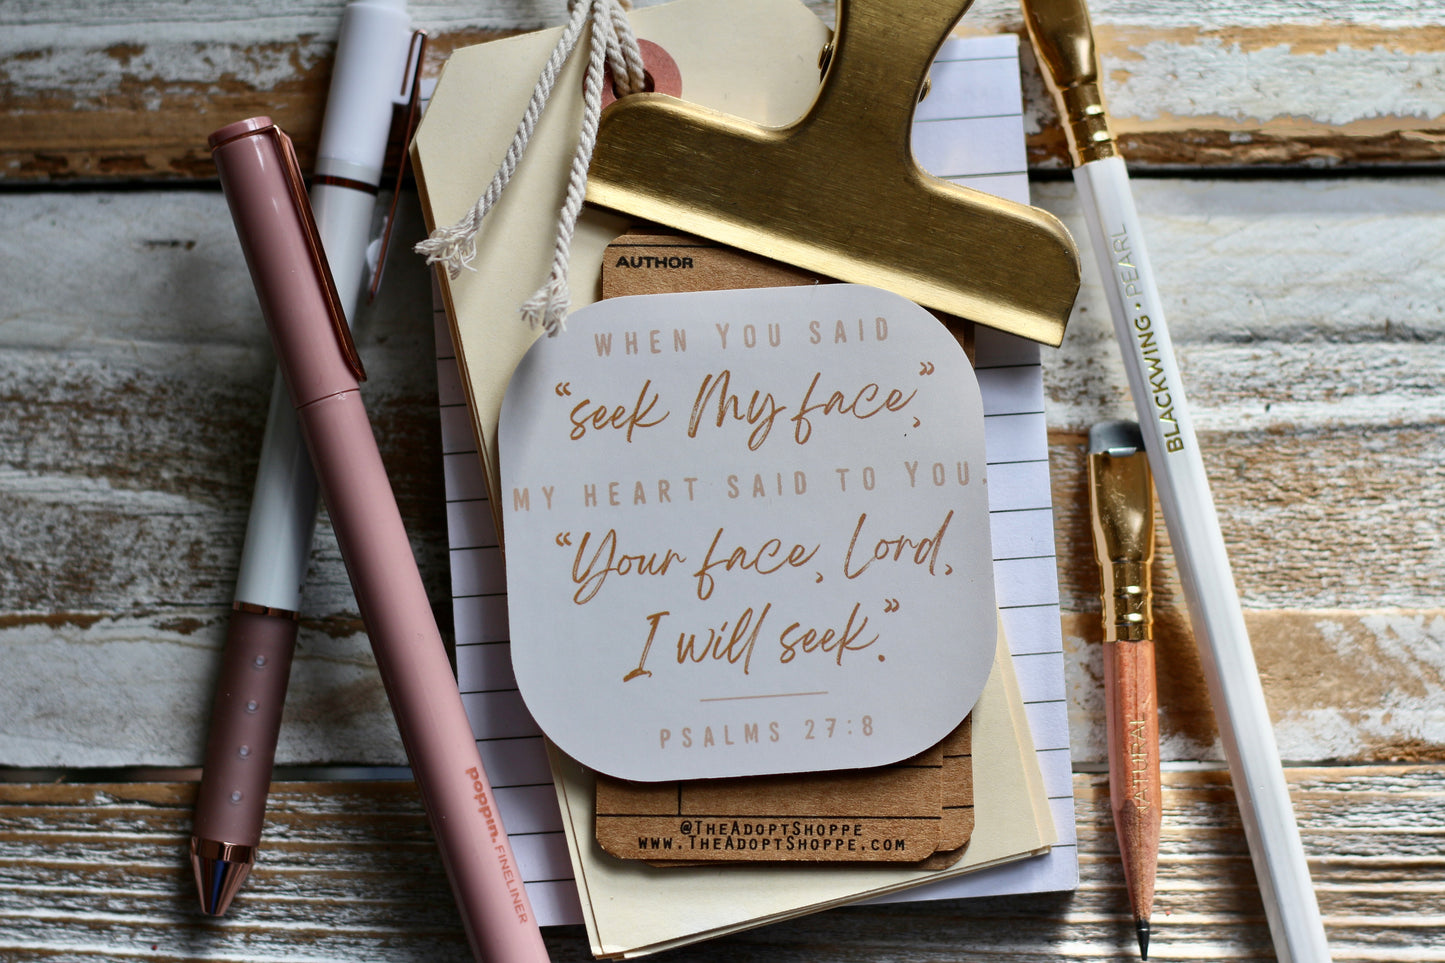 AUTHOR
WHEN YOU SAID
“seek My face,”
MY HEART SAID TO YOU,
“Your face, Lord,
I will seek.”
PSALMS 27:8
@THEADOPTSHOPPE
WWW.THEADOPTSHOPPE.COM
poppin. FINELINER
BLACKWING · PEARL
NATURAL